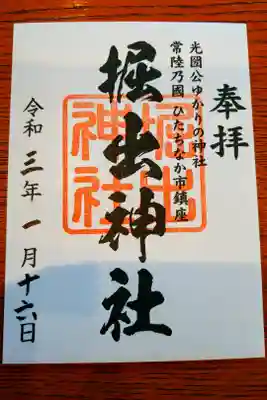 奉拝
光圀公ゆかりの神社
常陸乃國 ひたちなか市鎮座
掘出神社
掘出
神社
令和三年一月十六日